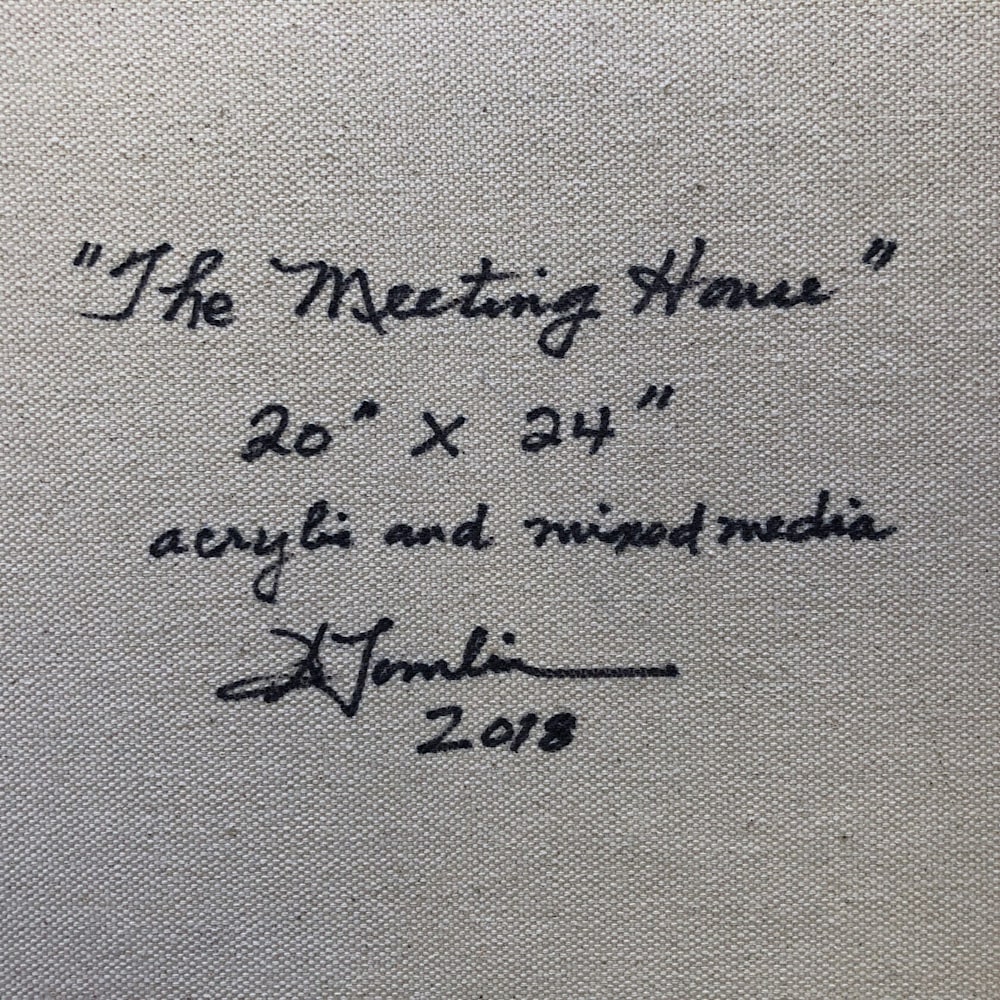 "The Meeting House"
20" X 24"
acrylic and mixed media
Tomlin
2018